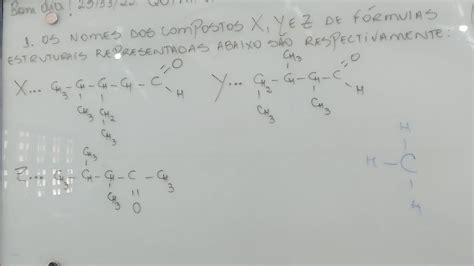 Bom dia! 23/33/22
1. OS NOMES DOS COMPOSTOS X, Y E Z DE FÓRMULAS
ESTRUTURAIS REPRESENTADAS ABAIXO SÃO RESPECTIVAMENTE:
CH3
X... CH3 - CH - CH - CH - C = O H
CH3 CH2
CH3
Y... CH2 - CH - CH - C = O H
CH3 CH3
CH3
Z... CH3 - CH - CH - C - CH3
CH3 O
H
H - C
H